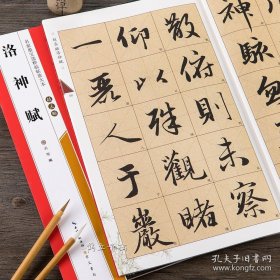 神駭
散俯則未察
仰以殊觀睹
一麗人于巖
洛神赋
孔夫子旧书网